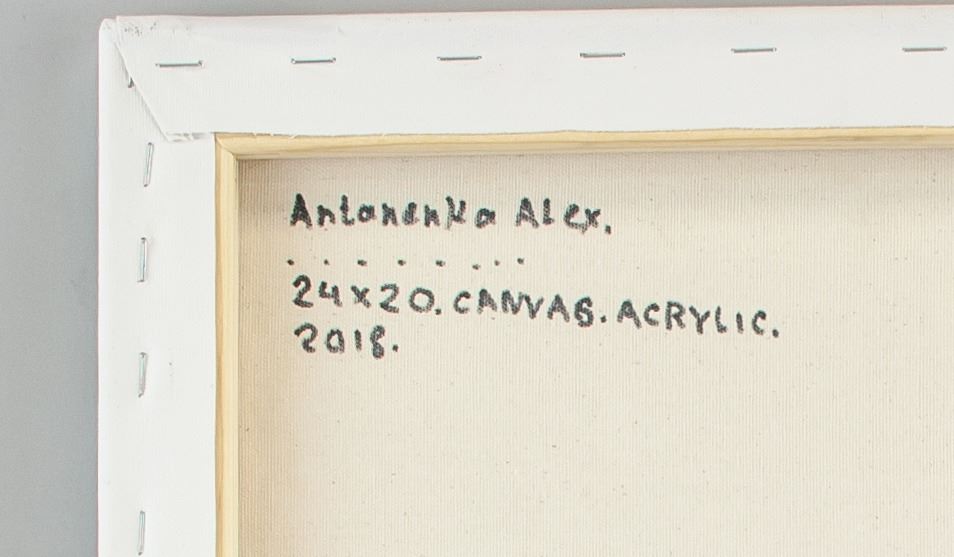 Antanenka Alex.
. . . . . . . .
24x20. CANVAS. ACRYLIC.
2018.